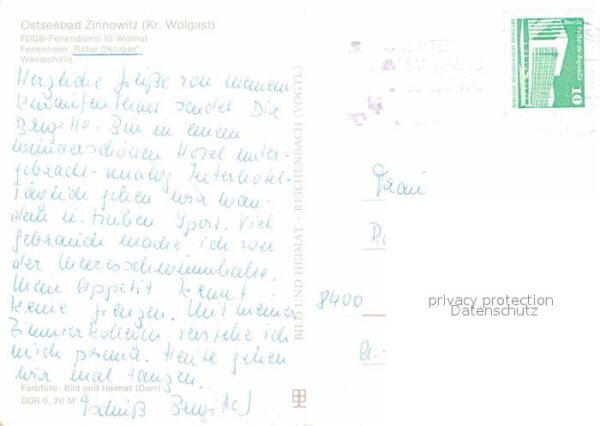 Ostseebad Zinnowitz (Kr. Wolgast)
FDGB-Feriendienst IG Wismut
Ferienheim „Roter Oktober"
Wandelhalle
Herzliche Grüße von meinem
Kuraufenthalt sendet Dir
Brigitte. Bin in einem
wunderschönen Hotel unter-
gebracht - analog Interhotel -
Täglich gehen wir wan-
dern u. treiben Sport. Viel
gebrauch mache ich von
der Meeresschwimmhalle.
Mein Appetit kennt
keine Grenzen. Mit meiner
Zimmerkollegin verstehe ich
mich prima. Heute gehen
wir mal tanzen.
Farbfoto: Bild und Heimat (Darr)
DDR 0,20 M
Tschüß Brigitte
BILD UND HEIMAT · REICHENBACH (VOGTL)
Berlin
Palast der Republik
10
Frau
8400
privacy protection
Datenschutz